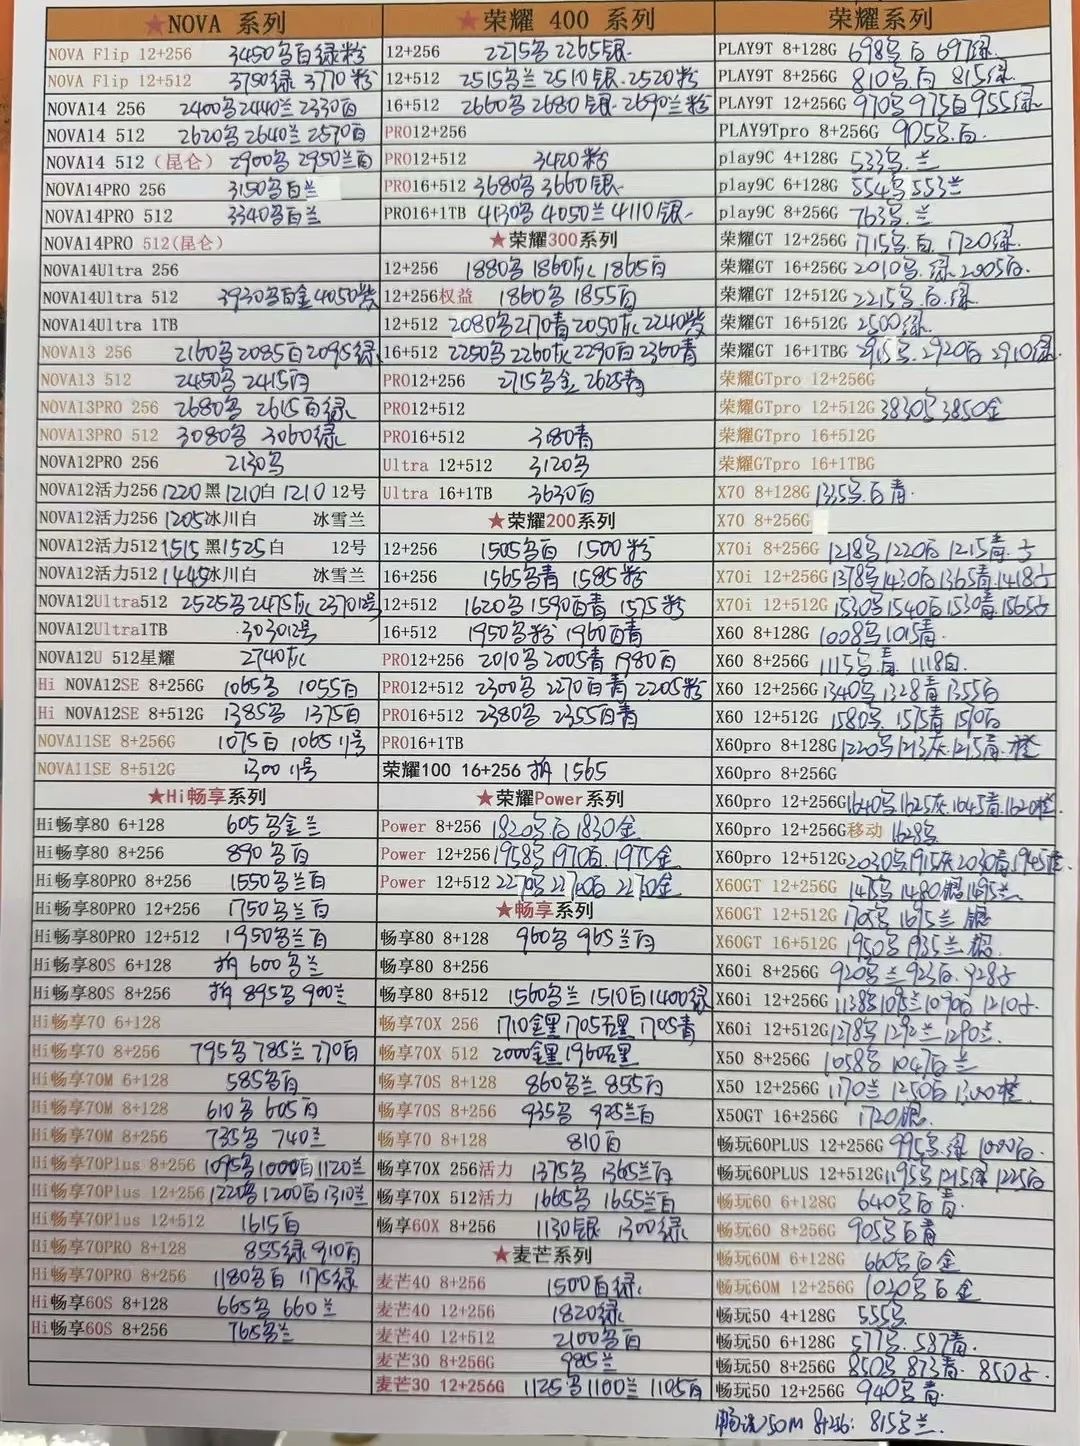 ★NOVA 系列
NOVA Flip 12+256 3450 白绿粉
NOVA Flip 12+512 3750绿 3770粉
NOVA14 256 2400 2440兰 2330白
NOVA14 512 2620 2640兰 2570白
NOVA14 512(昆仑) 2900 2950兰白
NOVA14PRO 256 3150 白兰
NOVA14PRO 512 3340 白兰
NOVA14PRO 512(昆仑)
NOVA14Ultra 256
NOVA14Ultra 512 3930 白金 4050紫
NOVA14Ultra 1TB
NOVA13 256 2160 2085白 2095绿
NOVA13 512 2450 2415白
NOVA13PRO 256 2680 2615白绿
NOVA13PRO 512 3080 3060绿
NOVA12PRO 256 2130
NOVA12活力256 1220黑 1210白 1210 12号
NOVA12活力256 1205冰川白 冰雪兰
NOVA12活力512 1515黑 1525白 12号
NOVA12活力512 1445冰川白 冰雪兰
NOVA12Ultra512 2525 2475灰 2370 12号
NOVA12Ultra1TB 3030 12号
NOVA12U 512星耀 2740灰
Hi NOVA12SE 8+256G 1065 1055白
Hi NOVA12SE 8+512G 1385 1375白
NOVA11SE 8+256G 1075白 1065 11号
NOVA11SE 8+512G 1300 11号
★Hi畅享系列
Hi畅享80 6+128 605 金兰
Hi畅享80 8+256 890 白
Hi畅享80PRO 8+256 1550 兰白
Hi畅享80PRO 12+256 1750 兰白
Hi畅享80PRO 12+512 1950 兰白
Hi畅享80S 6+128 拆 600 兰
Hi畅享80S 8+256 拆 895 900兰
Hi畅享70 6+128
Hi畅享70 8+256 795 785兰 770白
Hi畅享70M 6+128 585 白
Hi畅享70M 8+128 610 605白
Hi畅享70M 8+256 735 740兰
Hi畅享70Plus 8+256 1095 1000白 1120兰
Hi畅享70Plus 12+256 1220 1200白 1310兰
Hi畅享70Plus 12+512 1615白
Hi畅享70PRO 8+128 855绿 910白
Hi畅享70PRO 8+256 1180 白 1175绿
Hi畅享60S 8+128 665 660兰
Hi畅享60S 8+256 765 兰
★荣耀 400 系列
12+256 2275 2265银
12+512 2515 兰 2510银 2520粉
16+512 2660 2680银 2690兰粉
PRO12+256
PRO12+512 3420粉
PRO16+512 3680 3660银
PRO16+1TB 4130 4050兰 4110银
★荣耀300系列
12+256 1880 1860灰 1865白
12+256权益 1860 1855白
12+512 2080 2170青 2050灰 2240紫
16+512 2250 2260灰 2290白 2360青
PRO12+256 2715 金 2625青
PRO12+512
PRO16+512 3180青
Ultra 12+512 3120
Ultra 16+1TB 3630白
★荣耀200系列
12+256 1505 白 1500粉
16+256 1565 青 1585粉
12+512 1620 1590白青 1575粉
16+512 1950 粉 1960白青
PRO12+256 2010 2005青 1980白
PRO12+512 2300 2270白青 2205粉
PRO16+512 2380 2355白青
PRO16+1TB
荣耀100 16+256 拆 1565
★荣耀Power系列
Power 8+256 1820 白 1830金
Power 12+256 1958 1970白 1975金
Power 12+512 2270 2270金
★畅享系列
畅享80 8+128 960 965兰白
畅享80 8+256
畅享80 8+512 1560 兰 1510白 1400绿
畅享70X 256 1710金黑 1705 黑 1705青
畅享70X 512 2000金黑 1960 黑
畅享70S 8+128 860 兰 855白
畅享70S 8+256 935 925兰白
畅享70 8+128 810白
畅享70X 256活力 1375 1365兰白
畅享70X 512活力 1665 1655兰白
畅享60X 8+256 1130银 1300绿
★麦芒系列
麦芒40 8+256 1500白绿
麦芒40 12+256 1820绿
麦芒40 12+512 2100 白
麦芒30 8+256G 985兰
麦芒30 12+256G 1125 1100兰 1105白
荣耀系列
PLAY9T 8+128G 698 白 697绿
PLAY9T 8+256G 810 白 815绿
PLAY9T 12+256G 970 975白 955绿
PLAY9Tpro 8+256G 905 白
play9C 4+128G 533 兰
play9C 6+128G 554 553兰
play9C 8+256G 763 兰
荣耀GT 12+256G 1715 白 1720绿
荣耀GT 16+256G 2010 绿 2005白
荣耀GT 12+512G 2215 白 绿
荣耀GT 16+512G 2500绿
荣耀GT 16+1TBG 2915 2920白 2910绿
荣耀GTpro 12+256G
荣耀GTpro 12+512G 3830 3850金
荣耀GTpro 16+512G
荣耀GTpro 16+1TBG
X70 8+128G 1335 白青
X70 8+256G
X70i 8+256G 1218 1220白 1215青
X70i 12+256G 1378 1430白 1365青 1418
X70i 12+512G 1530 1540白 1530青 1565
X60 8+128G 1008 1015青
X60 8+256G 1115 青 1118白
X60 12+256G 1340 1328青 1355白
X60 12+512G 1580 1575青 1570白
X60pro 8+128G 1220 1213灰 1215青 橙
X60pro 8+256G
X60pro 12+256G 1640 1625灰 1645青 1620橙
X60pro 12+256G移动 1628
X60pro 12+512G 2030 1915灰 2030青 1945橙
X60GT 12+256G 1475 1480银 1495兰
X60GT 12+512G 1705 1675兰 银
X60GT 16+512G 1950 1935兰 银
X60i 8+256G 920 兰 923白 928
X60i 12+256G 1138 1095兰 1090白 1210
X60i 12+512G 1278 1292兰 1290
X50 8+256G 1058 1047白 兰
X50 12+256G 1170兰 1250白 1300橙
X50GT 16+256G 1720银
畅玩60PLUS 12+256G 995 绿 1000白
畅玩60PLUS 12+512G 1195 1215绿 1225白
畅玩60 6+128G 640 白青
畅玩60 8+256G 905 白青
畅玩60M 6+128G 660 白金
畅玩60M 12+256G 1020 白金
畅玩50 4+128G 555
畅玩50 6+128G 577 587青
畅玩50 8+256G 850 873青 850
畅玩50 12+256G 940 青
畅玩50M 8+256: 815 兰